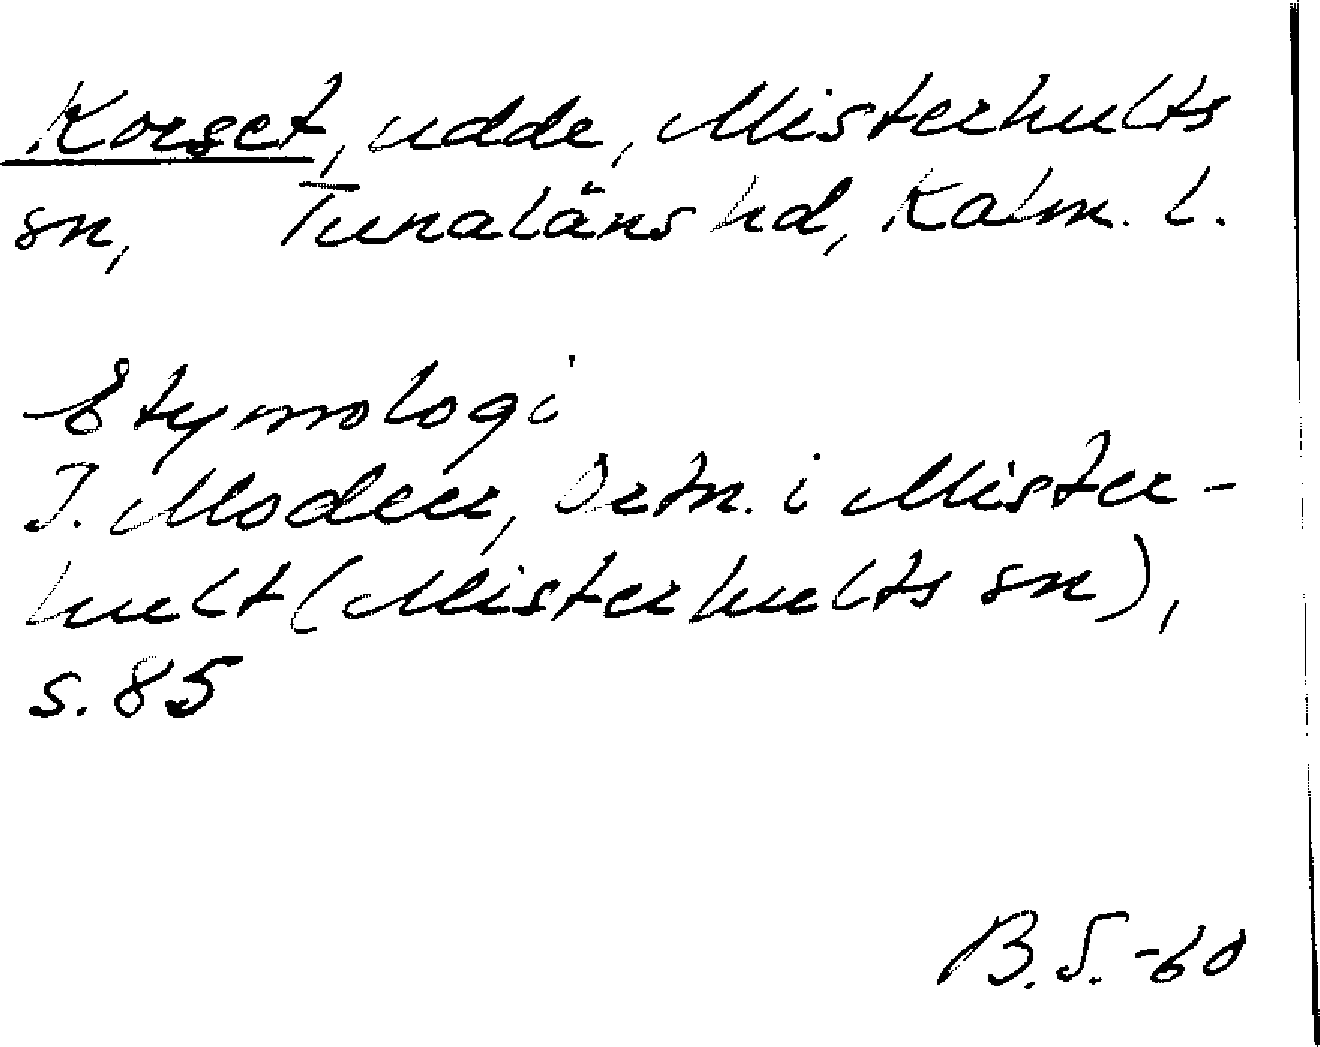 Korset, udde, Misterhults
sn, Tunaläns hd, Kalm. l.
Etymologi
I. Modeer, Ortn. i Mister-
hult (Misterhults sn),
s. 85
B.S.-60